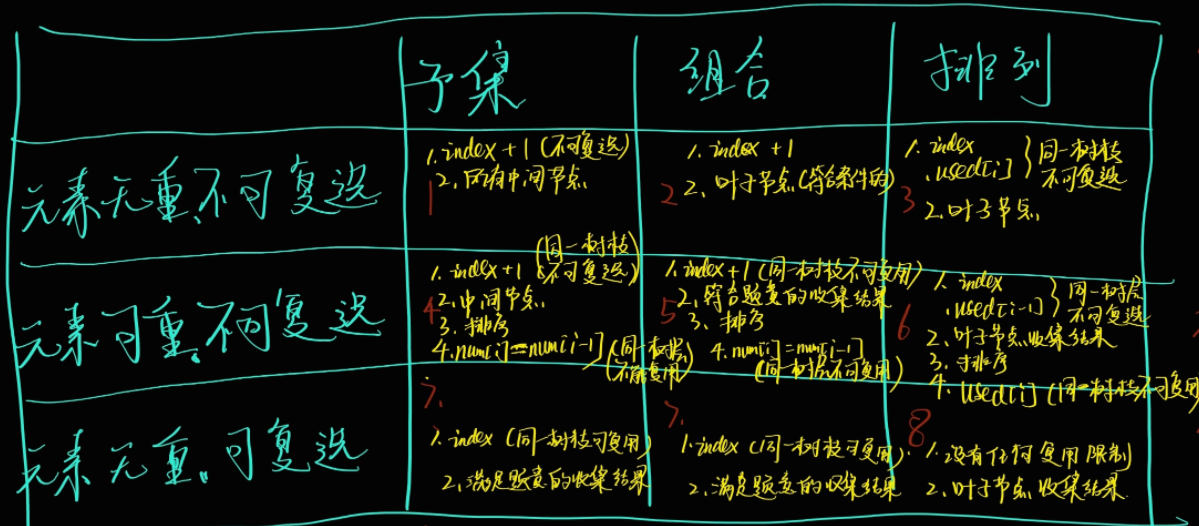 子集 组合 排列
元素无重,不可复选
1
1. index + 1 (不可复选)
2. 所有中间节点
2
1. index + 1
2. 叶子节点(符合条件的)
3
1. index
.used[i] } 同一树枝
不可复选
2. 叶子节点
元素可重,不可复选
4
(同一树枝
1. index+1 不可复选)
2. 中间节点
3. 排序
4. num[i]=num[i-1] (同一树层
不能复用)
5
1. index+1 (同一树枝不可复用)
2. 符合题意的收集结果
3. 排序
4. num[i]=num[i-1]
(同一树层不可复用)
6
1. index
.used[i-1] } 同一树层
不可复选
2. 叶子节点收集结果
3. 排序
4. used[i] (同一树枝不可复用
元素无重,可复选
7.
1. index (同一树枝可复用)
2. 满足题意的收集结果
7.
1. index (同一树枝可复用)
2. 满足题意的收集结果
8
1. 没有任何复用限制
2. 叶子节点收集结果